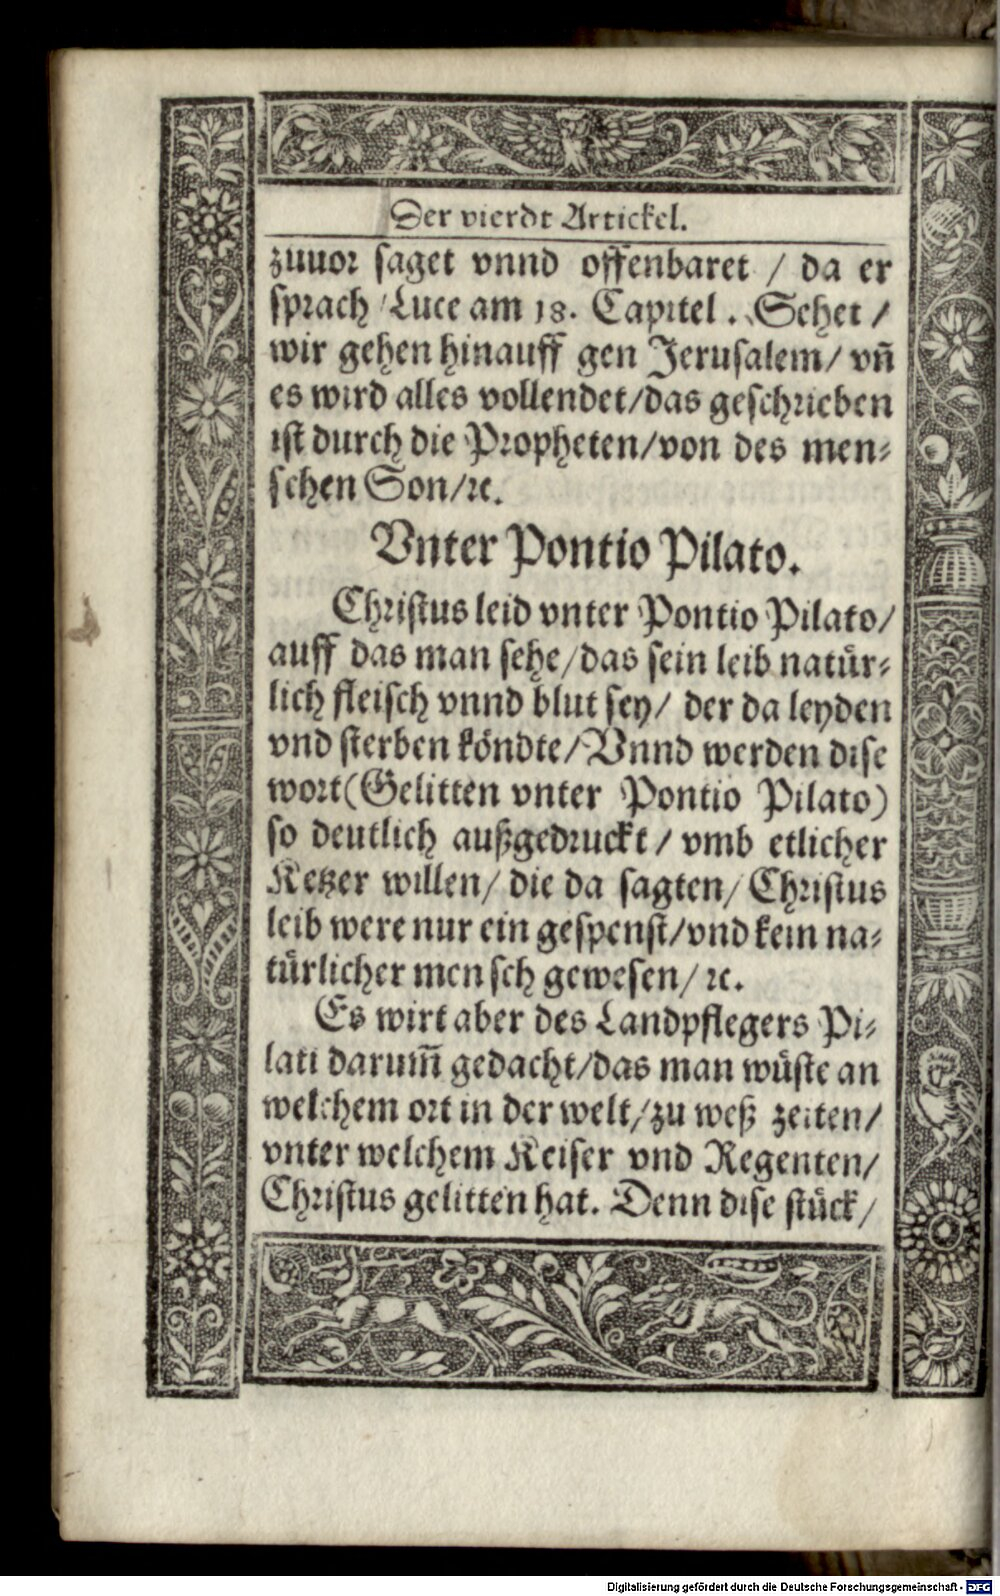 Der vierdt Artickel.
zuuor saget vnnd offenbaret / da er
sprach / Luce am 18. Capitel. Sehet /
wir gehen hinauff gen Jerusalem / vñ
es wird alles vollendet / das geschrieben
ist durch die Propheten / von des men⸗
schen Son / ꝛc.
Vnter Pontio Pilato.
Christus leid vnter Pontio Pilato /
auff das man sehe / das sein leib natür⸗
lich fleisch vnnd blut sey / der da leyden
vnd sterben köndte / Vnnd werden dise
wort (Gelitten vnter Pontio Pilato)
so deutlich außgedruckt / vmb etlicher
Ketzer willen / die da sagten / Christus
leib were nur ein gespenst / vnd kein na⸗
türlicher mensch gewesen / ꝛc.
Es wirt aber des Landpflegers Pi⸗
lati darum̃ gedacht / das man wüste an
welchem ort in der welt / zu weß zeiten /
vnter welchem Keiser vnd Regenten /
Christus gelitten hat. Denn dise stück /
Digitalisierung gefördert durch die Deutsche Forschungsgemeinschaft - DFG